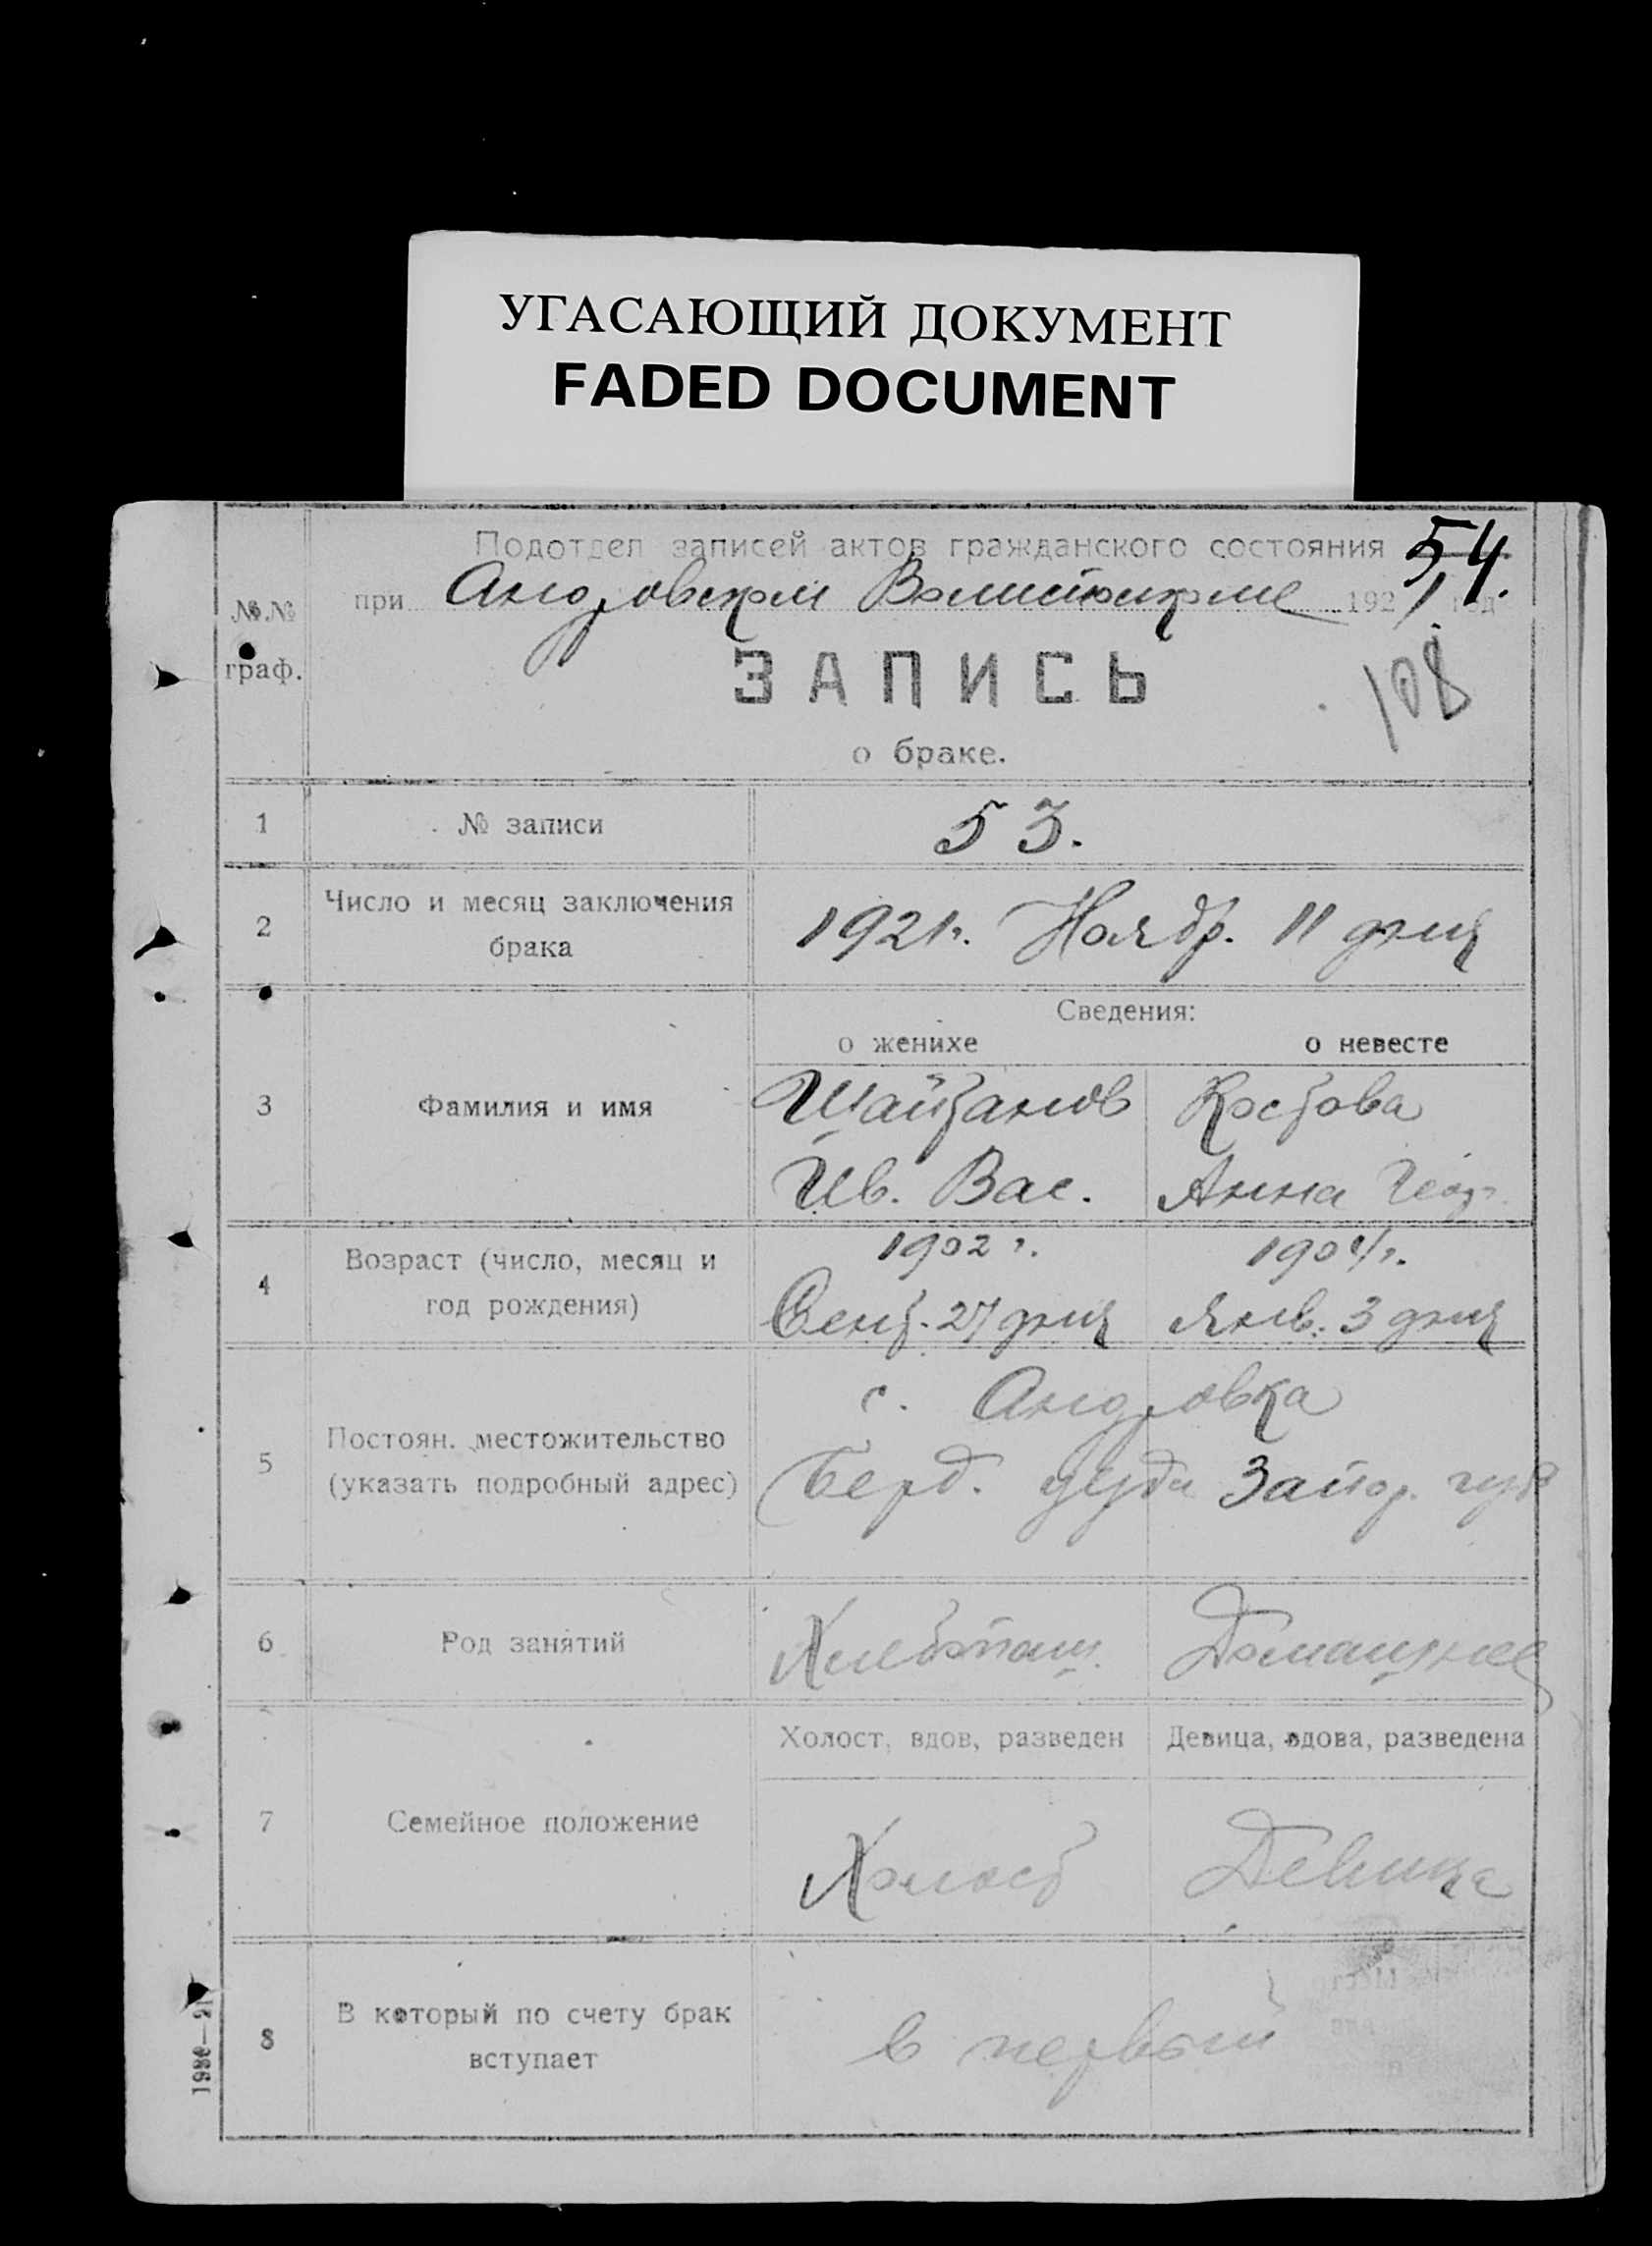 УГАСАЮЩИЙ ДОКУМЕНТ
FADED DOCUMENT
54.
Подотдел записей актов гражданского состояния
при Андровском Волисполкоме 1921 год
№№ граф.
ЗАПИСЬ
108
о браке.
1 № записи 53.
2 Число и месяц заключения брака 1921г. Ноябр. 11 дня
Сведения:
о женихе о невесте
3 Фамилия и имя
Шайтанов Костова
Ив. Вас. Анна Геор.
4 Возраст (число, месяц и год рождения)
1902 г. 1904 г.
Сент. 27 дня Янв. 3 дня
5 Постоян. местожительство (указать подробный адрес)
с. Андровка
Берд. уезда Запор. губ
6 Род занятий Хлебопаш. Домашнее
Холост, вдов, разведен Девица, вдова, разведена
7 Семейное положение Холост Девица
8 В который по счету брак вступает в первый